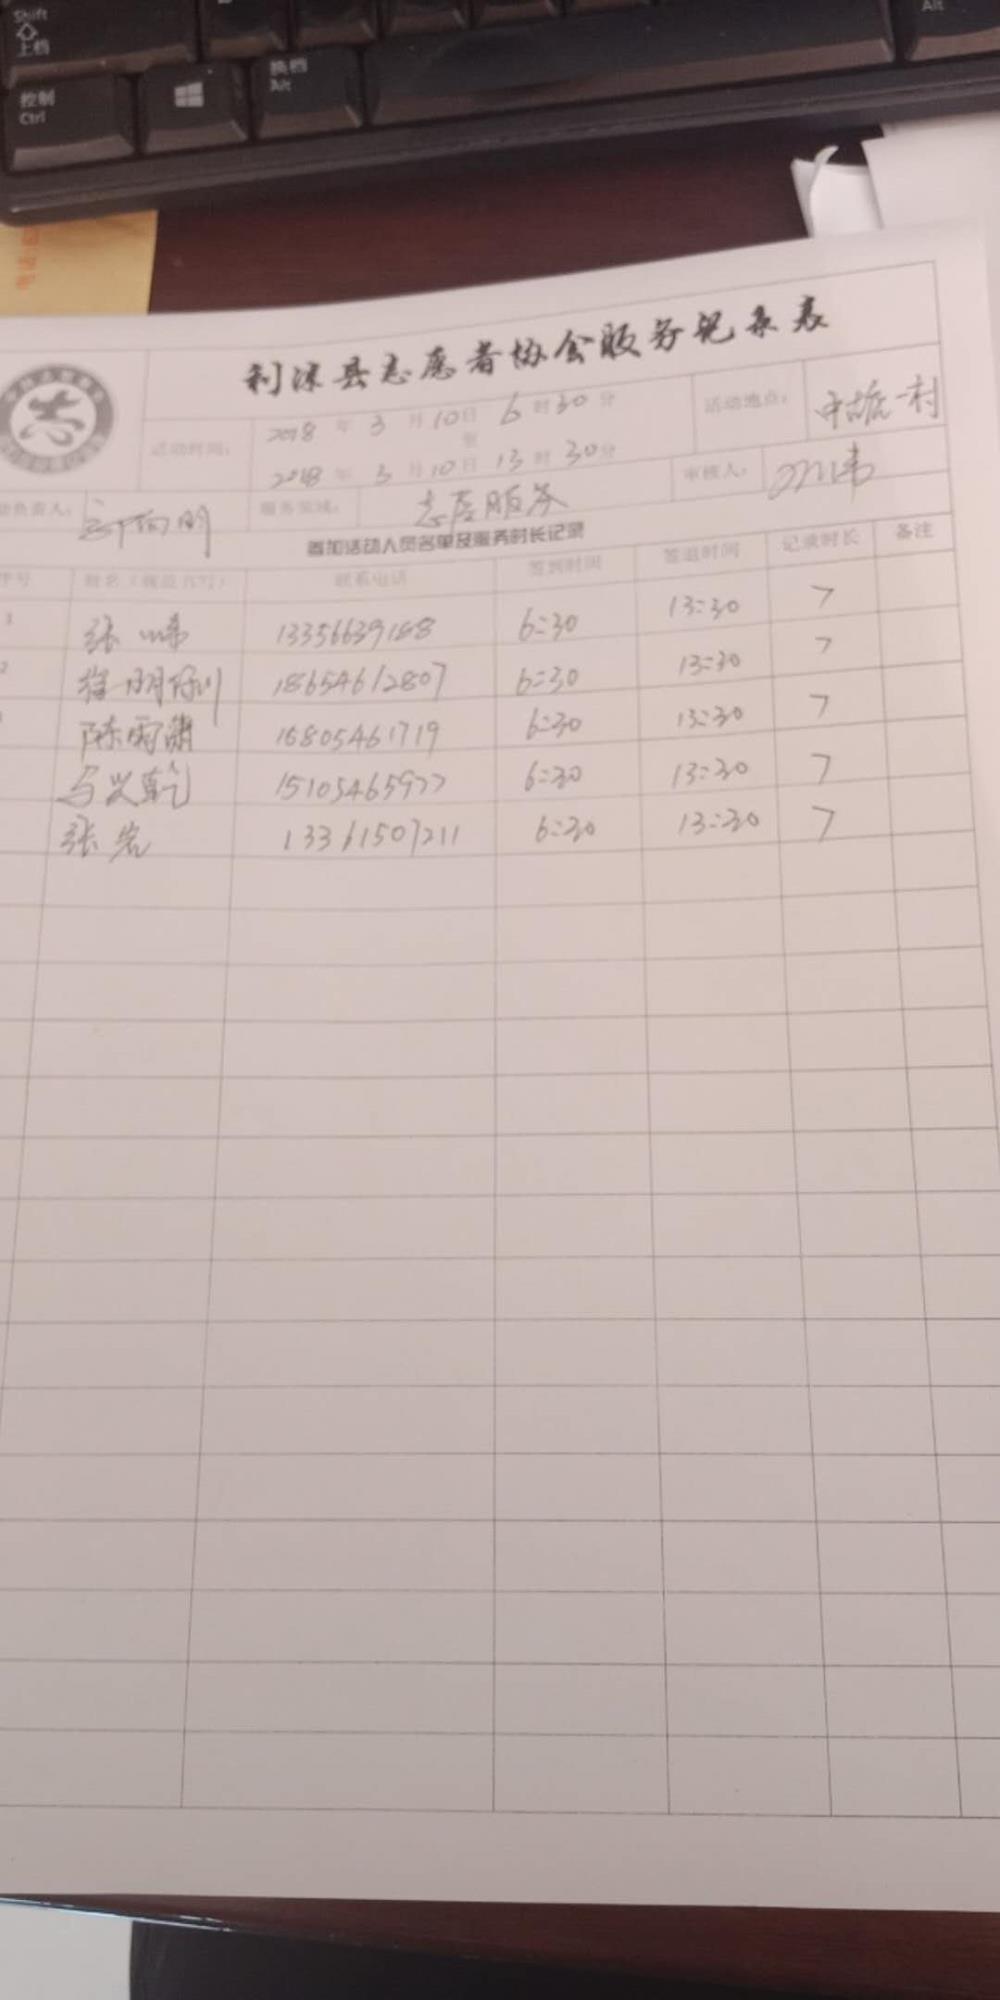 Shift
上档
控制
Ctrl
换档
Alt
Alt
利津县志愿者协会服务记录表
活动时间: 2018 年 3 月 10 日 6 时 30 分
至
2018 年 3 月 10 日 13 时 30 分
活动地点: 一村
负责人: 明
服务领域: 志愿服务
审核人:
参加活动人员名单及服务时长记录
序号 姓名(规范书写) 联系电话 签到时间 签退时间 记录时长 备注
1 张 13356639188 6:30 13:30 7
2 18654612807 6:30 13:30 7
陈雨潇 16805461719 6:30 13:30 7
马兴乾 15105465977 6:30 13:30 7
张岩 13361507211 6:30 13:30 7